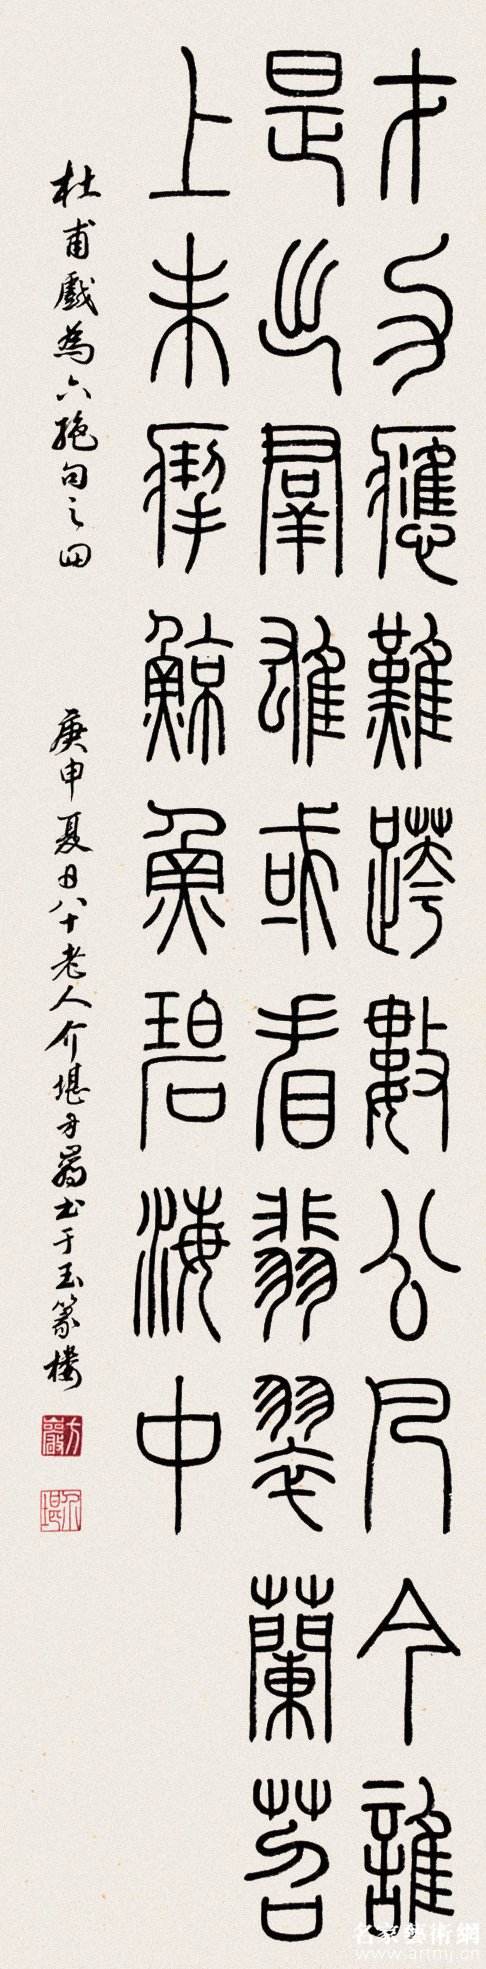 才力應難跨數公凡今誰
是出群雄或看翡翠蘭苕
上未掣鯨魚碧海中
杜甫戲為六絕句之四
庚申夏日八十老人介堪方嚴書于玉篆樓
方嚴
介堪
名家藝術網
www.artmj.cn